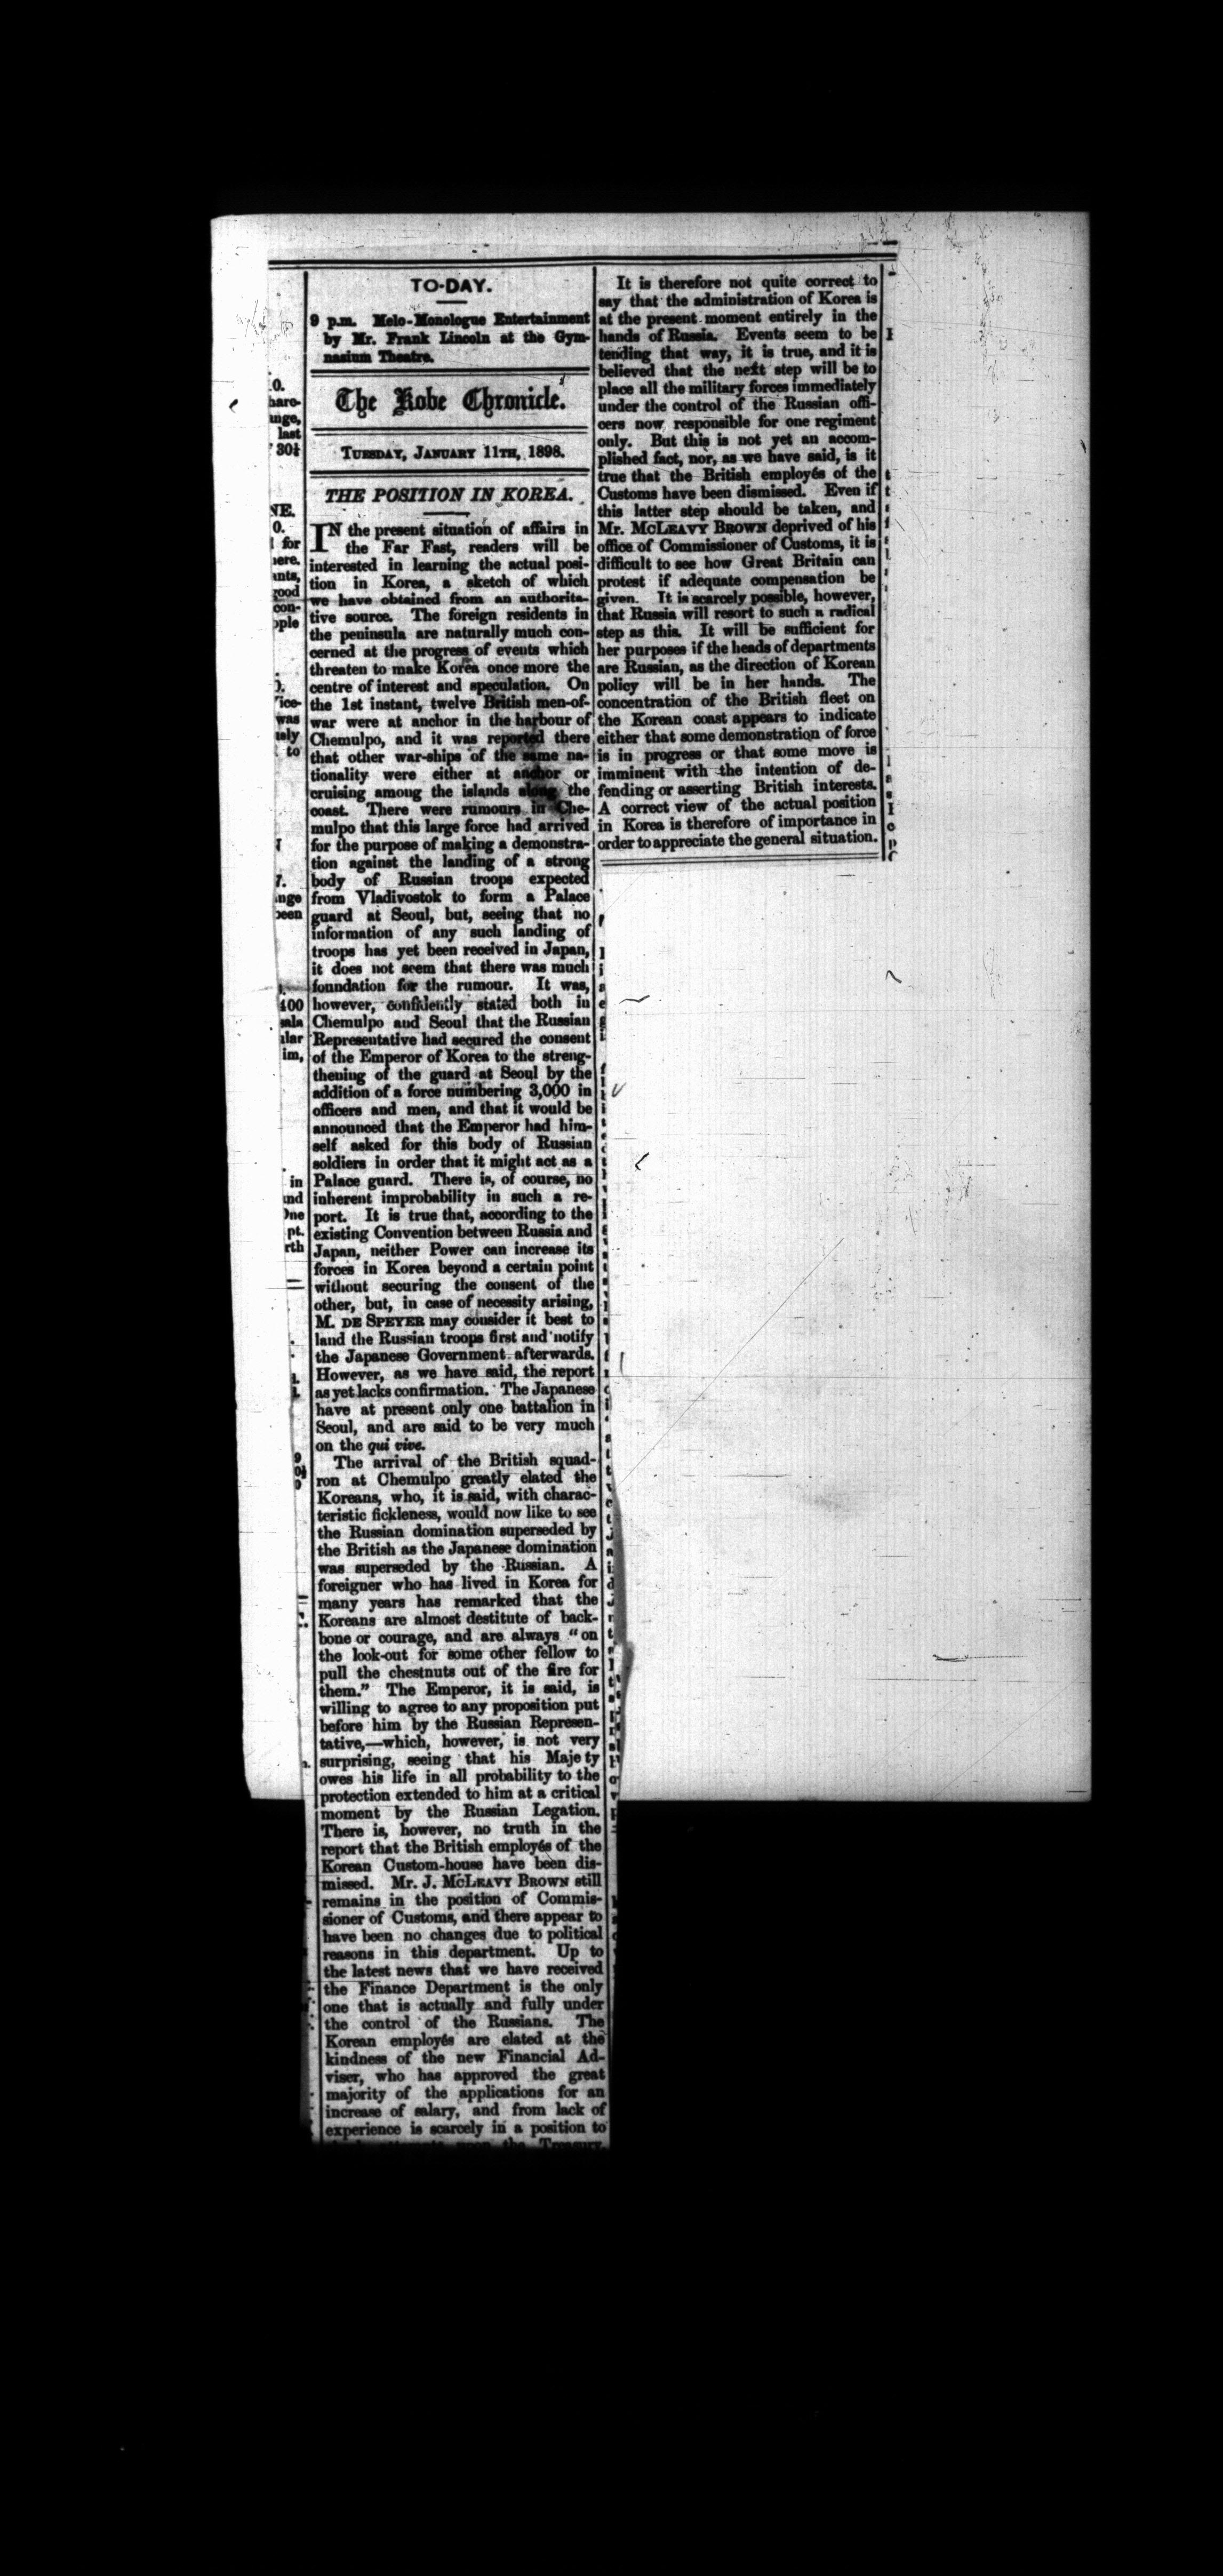 TO-DAY.
9 p.m. Melo-Monologue Entertainment
by Mr. Frank Lincoln at the Gym-
nasium Theatre.
The Kobe Chronicle.
TUESDAY, JANUARY 11TH, 1898.
THE POSITION IN KOREA.
IN the present situation of affairs in
the Far Fast, readers will be
interested in learning the actual posi-
tion in Korea, a sketch of which
we have obtained from an authorita-
tive source. The foreign residents in
the peninsula are naturally much con-
cerned at the progress of events which
threaten to make Korea once more the
centre of interest and speculation. On
the 1st instant, twelve British men-of-
war were at anchor in the harbour of
Chemulpo, and it was reported there
that other war-ships of the same na-
tionality were either at anchor or
cruising among the islands along the
coast. There were rumours in Che-
mulpo that this large force had arrived
for the purpose of making a demonstra-
tion against the landing of a strong
body of Russian troops expected
from Vladivostok to form a Palace
guard at Seoul, but, seeing that no
information of any such landing of
troops has yet been received in Japan,
it does not seem that there was much
foundation for the rumour. It was,
however, confidently stated both in
Chemulpo and Seoul that the Russian
Representative had secured the consent
of the Emperor of Korea to the streng-
thening of the guard at Seoul by the
addition of a force numbering 3,000 in
officers and men, and that it would be
announced that the Emperor had him-
self asked for this body of Russian
soldiers in order that it might act as a
Palace guard. There is, of course, no
inherent improbability in such a re-
port. It is true that, according to the
existing Convention between Russia and
Japan, neither Power can increase its
forces in Korea beyond a certain point
without securing the consent of the
other, but, in case of necessity arising,
M. DE SPEYER may consider it best to
land the Russian troops first and notify
the Japanese Government afterwards.
However, as we have said, the report
as yet lacks confirmation. The Japanese
have at present only one battalion in
Seoul, and are said to be very much
on the qui vive.
The arrival of the British squad-
ron at Chemulpo greatly elated the
Koreans, who, it is said, with charac-
teristic fickleness, would now like to see
the Russian domination superseded by
the British as the Japanese domination
was superseded by the Russian. A
foreigner who has lived in Korea for
many years has remarked that the
Koreans are almost destitute of back-
bone or courage, and are always "on
the look-out for some other fellow to
pull the chestnuts out of the fire for
them." The Emperor, it is said, is
willing to agree to any proposition put
before him by the Russian Represen-
tative,—which, however, is not very
surprising, seeing that his Maje ty
owes his life in all probability to the
protection extended to him at a critical
moment by the Russian Legation.
There is, however, no truth in the
report that the British employés of the
Korean Custom-house have been dis-
missed. Mr. J. McLEAVY BROWN still
remains in the position of Commis-
sioner of Customs, and there appear to
have been no changes due to political
reasons in this department. Up to
the latest news that we have received
the Finance Department is the only
one that is actually and fully under
the control of the Russians. The
Korean employés are elated at the
kindness of the new Financial Ad-
viser, who has approved the great
majority of the applications for an
increase of salary, and from lack of
experience is scarcely in a position to
upon the Treasury.
It is therefore not quite correct to
say that the administration of Korea is
at the present moment entirely in the
hands of Russia. Events seem to be
tending that way, it is true, and it is
believed that the next step will be to
place all the military forces immediately
under the control of the Russian offi-
cers now responsible for one regiment
only. But this is not yet an accom-
plished fact, nor, as we have said, is it
true that the British employés of the
Customs have been dismissed. Even if
this latter step should be taken, and
Mr. McLEAVY BROWN deprived of his
office of Commissioner of Customs, it is
difficult to see how Great Britain can
protest if adequate compensation be
given. It is scarcely possible, however,
that Russia will resort to such a radical
step as this. It will be sufficient for
her purposes if the heads of departments
are Russian, as the direction of Korean
policy will be in her hands. The
concentration of the British fleet on
the Korean coast appears to indicate
either that some demonstration of force
is in progress or that some move is
imminent with the intention of de-
fending or asserting British interests.
A correct view of the actual position
in Korea is therefore of importance in
order to appreciate the general situation.